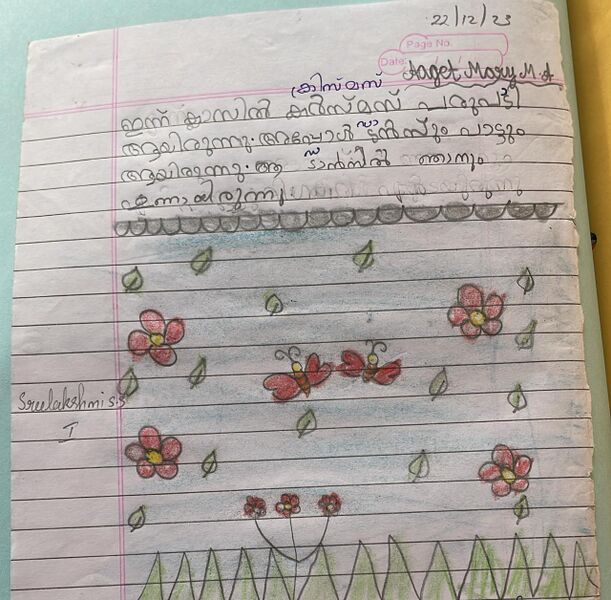 22/12/23
Page No.
Date:
Aaget Mary M.A
ക്രിസ്മസ്
ഇന്ന് ക്ലാസിൽ കരിസ്മസ് പരുപട്ടി
ആയിരുന്നു. അപ്പോൾ ടാൻസും പാട്ടും
ഡാ
ആയിരുന്നു. ആ ടാൻസിൽ ഞാനും
ഡ
ഉണ്ടായിരുന്നു
Sreelakshmi S.S
I